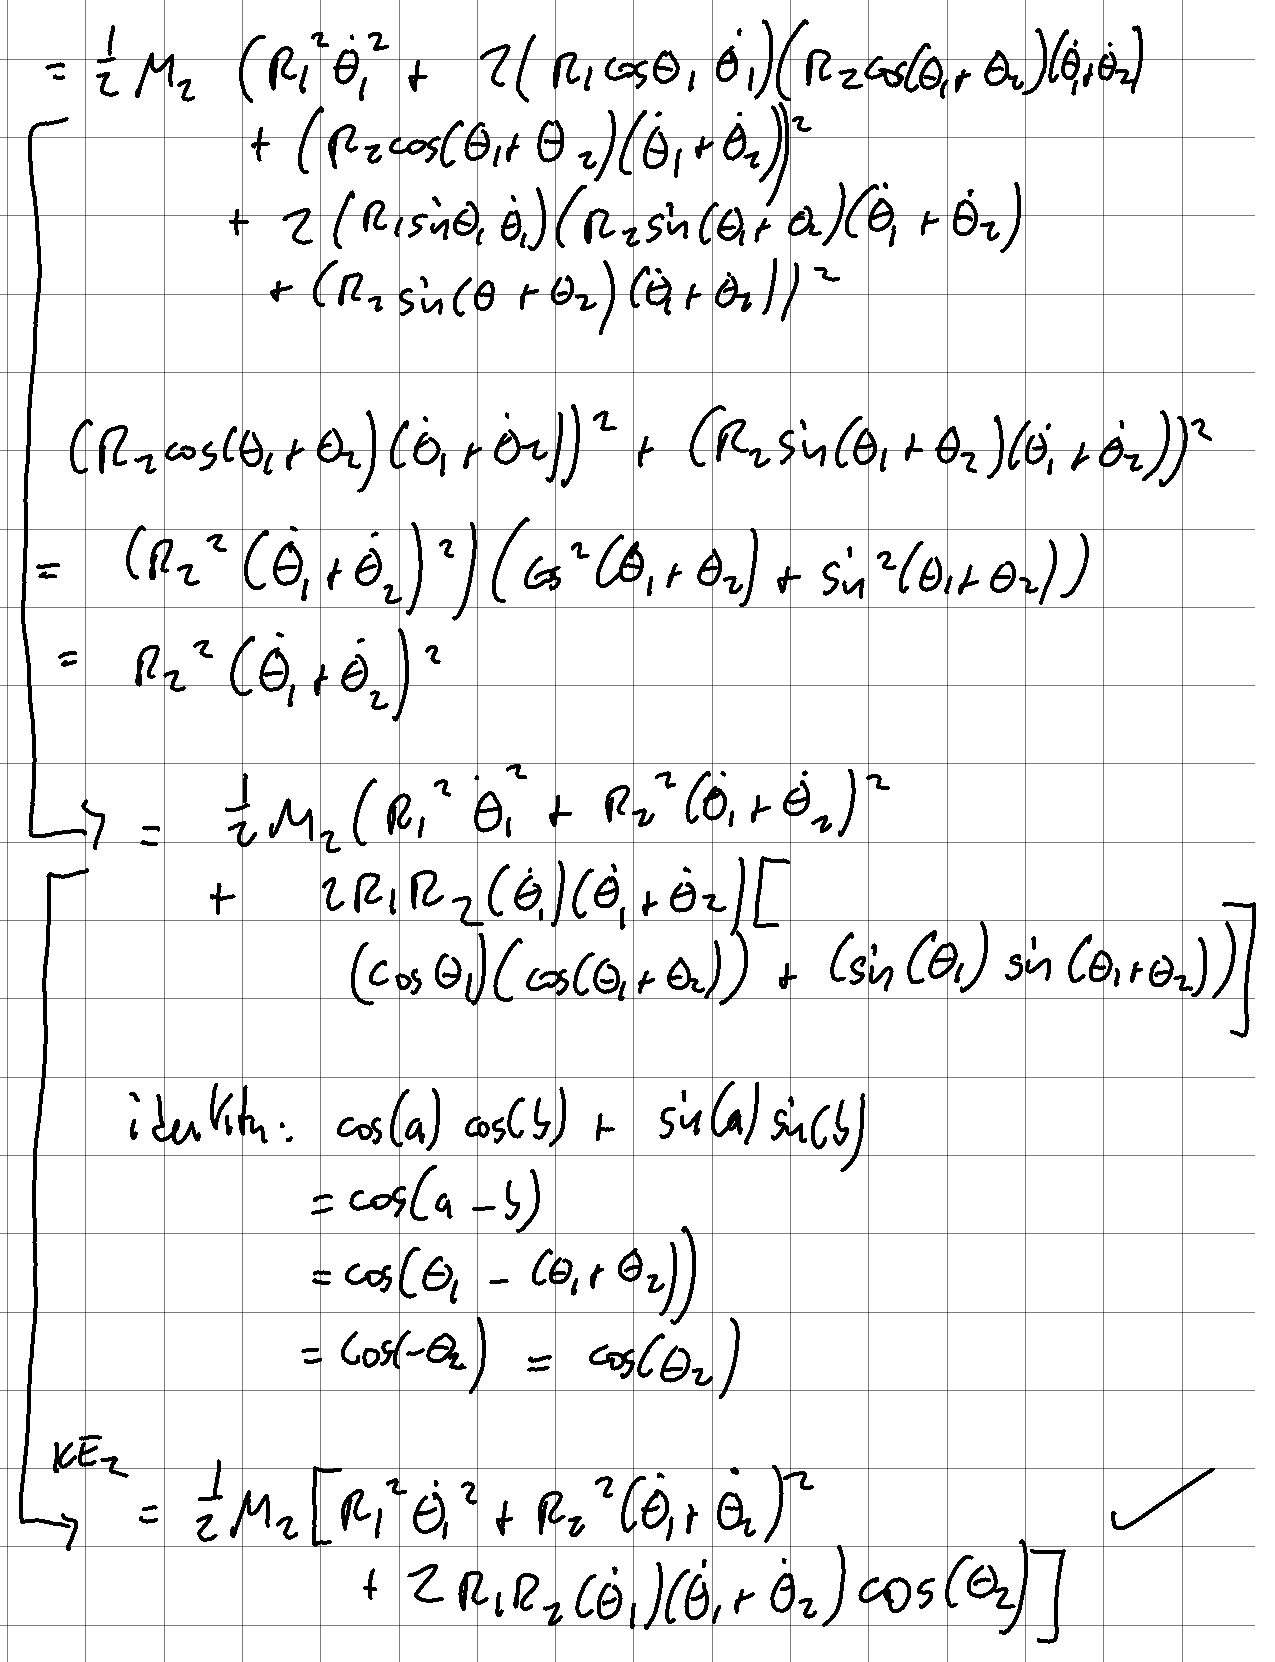 = ½ M₂ (R₁²θ̇₁² + 2(R₁cosθ₁ θ̇₁)(R₂cos(θ₁+θ₂)(θ̇₁+θ̇₂)
+ (R₂cos(θ₁+θ₂)(θ̇₁+θ̇₂))²
+ 2(R₁sinθ₁ θ̇₁)(R₂sin(θ₁+θ₂)(θ̇₁+θ̇₂)
+ (R₂sin(θ+θ₂)(θ̇₁+θ̇₂))²
(R₂cos(θ₁+θ₂)(θ̇₁+θ̇₂))² + (R₂sin(θ₁+θ₂)(θ̇₁+θ̇₂))²
= (R₂²(θ̇₁+θ̇₂)²)(cos²(θ₁+θ₂) + sin²(θ₁+θ₂))
= R₂²(θ̇₁+θ̇₂)²
= ½ M₂(R₁²θ̇₁² + R₂²(θ̇₁+θ̇₂)²
+ 2R₁R₂(θ̇₁)(θ̇₁+θ̇₂)[
(cosθ₁)(cos(θ₁+θ₂)) + (sin(θ₁) sin(θ₁+θ₂))]
identity: cos(a) cos(b) + sin(a) sin(b)
= cos(a - b)
= cos(θ₁ - (θ₁+θ₂))
= cos(-θ₂) = cos(θ₂)
KE₂
= ½ M₂[R₁²θ̇₁² + R₂²(θ̇₁+θ̇₂)² ✓
+ 2R₁R₂(θ̇₁)(θ̇₁+θ̇₂)cos(θ₂)]